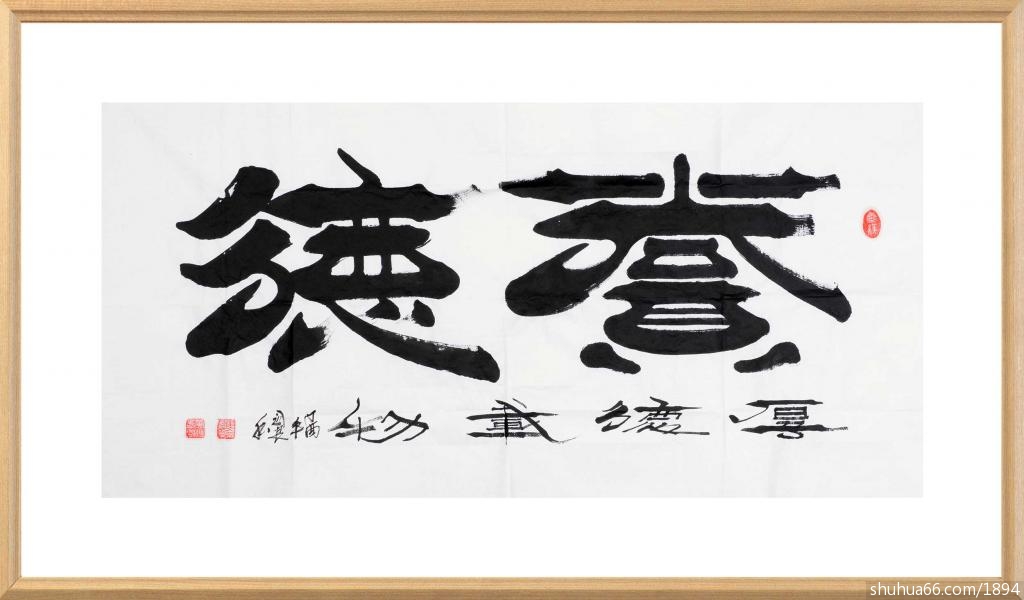 養德
厚德載物
shuhua66.com/1894